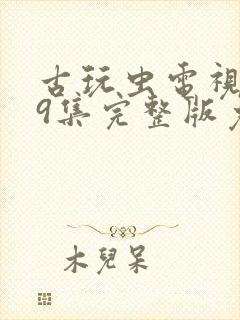 古玩虫電視
9集完整版
木兒呆